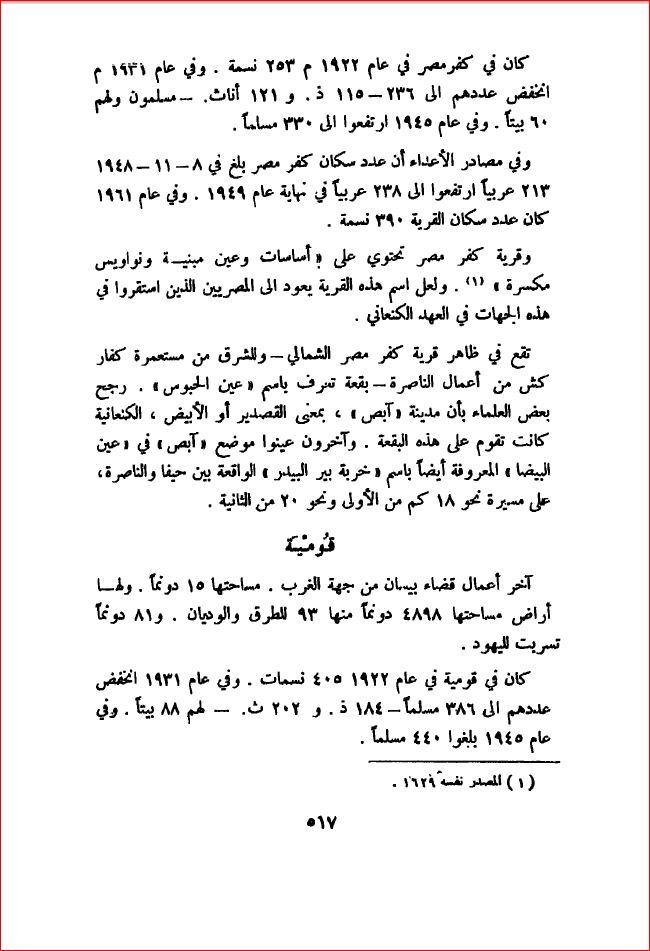 كان في كفرمصر في عام ١٩٢٢ م ٢٥٣ نسمة . وفي عام ١٩٣١ م
انخفض عددهم الى ٢٣٦ – ١١٥ ذ . و ١٢١ أناث. – مسلمون ولهم
٦٠ بيتاً . وفي عام ١٩٤٥ ارتفعوا الى ٣٣٠ مسلماً .
وفي مصادر الأعداء أن عدد سكان كفر مصر بلغ في ٨ – ١١ – ١٩٤٨
٢١٣ عربياً ارتفعوا الى ٢٣٨ عربياً في نهاية عام ١٩٤٩ . وفي عام ١٩٦١
كان عدد سكان القرية ٣٩٠ نسمة .
وقرية كفر مصر تحتوي على « أساسات وعين مبنيـة ونواويس
مكسرة » (١) . ولعل اسم هذه القرية يعود الى المصريين الذين استقروا في
هذه الجهات في العهد الكنعاني .
تقع في ظاهر قرية كفر مصر الشمالي – وللشرق من مستعمرة كفار
كش من أعمال الناصرة – بقعة تعرف باسم « عين الحبوس » . رجح
بعض العلماء بأن مدينة « آبص » ، بمعنى القصدير أو الأبيض ، الكنعانية
كانت تقوم على هذه البقعة . وآخرون عينوا موضع « آبص » في « عين
البيضا » المعروفة أيضاً باسم « خربة بير البيدر » الواقعة بين حيفا والناصرة،
على مسيرة نحو ١٨ كم من الأولى ونحو ٢٠ من الثانية .
قُومْيَة
آخر أعمال قضاء بيسان من جهة الغرب . مساحتها ١٥ دونماً . ولهـا
أراض مساحتها ٤٨٩٨ دونماً منها ٩٣ للطرق والوديان . و٨١ دونماً
تسربت لليهود .
كان في قومية في عام ١٩٢٢ ٤٠٥ نسمات . وفي عام ١٩٣١ انخفض
عددهم الى ٣٨٦ مسلماً – ١٨٤ ذ . و ٢٠٢ ث. – لهم ٨٨ بيتاً . وفي
عام ١٩٤٥ بلغوا ٤٤٠ مسلماً .
(١) المصدر نفسه ١٦٢٩ .
٥١٧